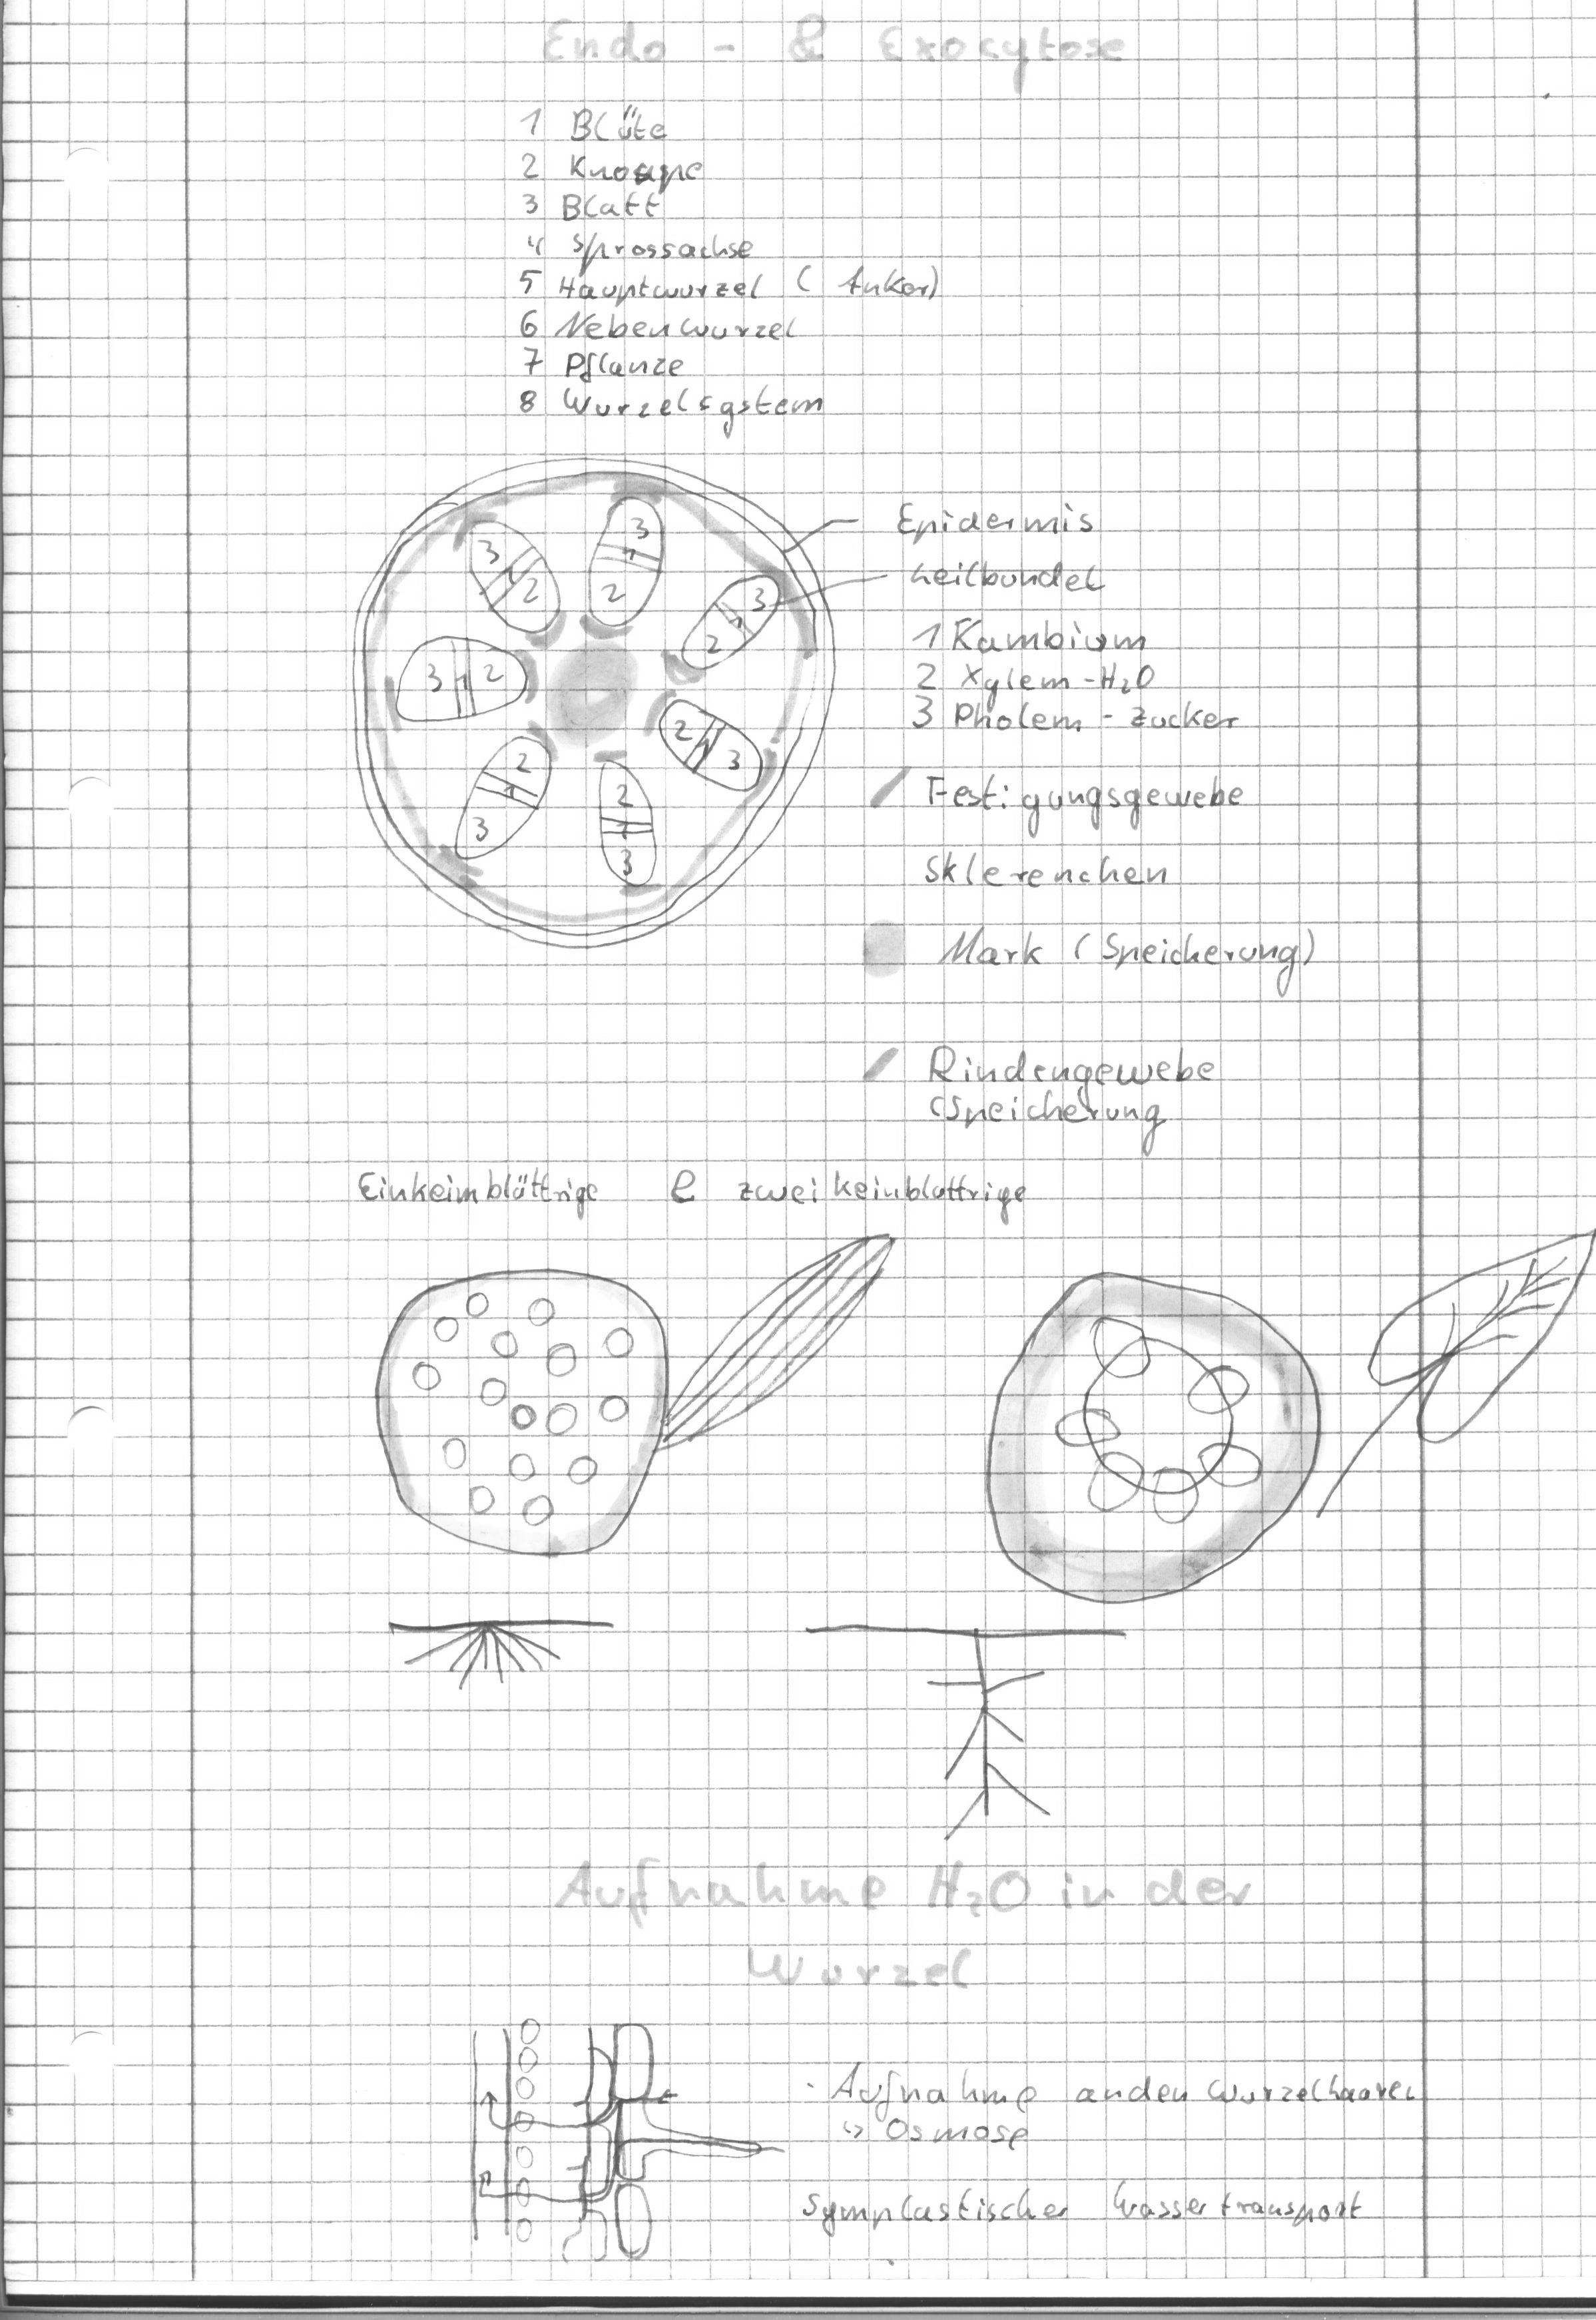 Endo - & Exocytose
1 Blüte
2 Knospe
3 Blatt
4 Sprossachse
5 Hauptwurzel ( Anker)
6 Nebenwurzel
7 Pflanze
8 Wurzelsystem
Epidermis
Leitbundel
1 Kambium
2 Xylem - H₂O
3 Pholem - Zucker
Festigungsgewebe
Sklerenchen
Mark (Speicherung)
Rindengewebe
(Speicherung
Einkeimblättrige e zweikeimblattrige
3 3
1 1
2 2
3
1
2
3 1 2
2 1 3
2
1
3
2
1
3
Aufnahme H₂O in der
Wurzel
· Aufnahme an den Wurzelhaaren
↳ Osmose
Symplastischer Wassertransport